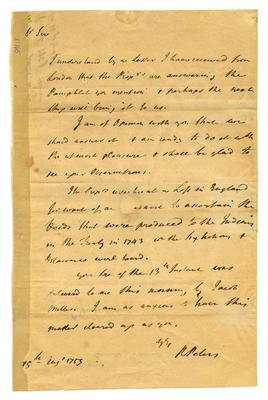 Sir
I understand by a letter I have received from
London that the Proprs are answering the
Pamphlet you mention & perhaps the next
ship will bring it to us.
I am of Opinion with you that we
shoud answer it & am ready to do it with
the utmost pleasure & shall be glad to
see your Observations.
The Proprs were at a Loss in England
for want of to ascertain the
Deeds that were produced to the Indians
in the Treaty in 1743 with the &
Delawares were bound.
your line of the 13th Instant was
delivered to me this morning by Jacob
I am as anxious to have this
matter cleared up as you.
R Peters
15th Augt 1753